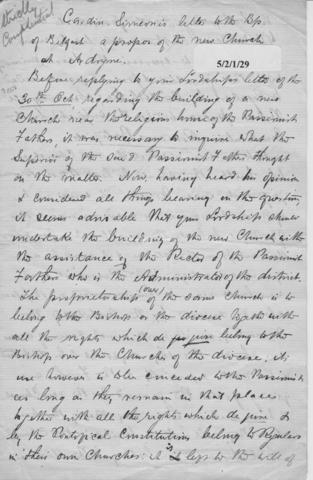 Strictly
Confidential
Cardin. Simeoni's letter to the Bp.
of Belfast a propos of the new Church
at Ardoyne.
5/2/1/29
Before replying to your Lordship's letter of the
30th Oct. regarding the building of a new
Church near the religious house of the Passionist
Fathers, it was necessary to inquire what the
Superior of the said Passionist Fathers thought
on the matter. Now, having heard his opinion
& considered all things bearing on the question,
it seems advisable that your Lordship should
undertake the building of the new Church with
the assistance of the Rector of the Passionist
Fathers who is the Administrator of the district.
The proprietorship (own) of the same Church is to
belong to the Bishop or the diocese together with
all the rights which de jure belong to the
Bishop over the Churches of the diocese, its
use however is to be conceded to the Passionists
as long as they remain in that place
together with all the rights which de jure &
by the Pontifical Constitutions belong to Regulars
in their own Churches: it is left to the will of